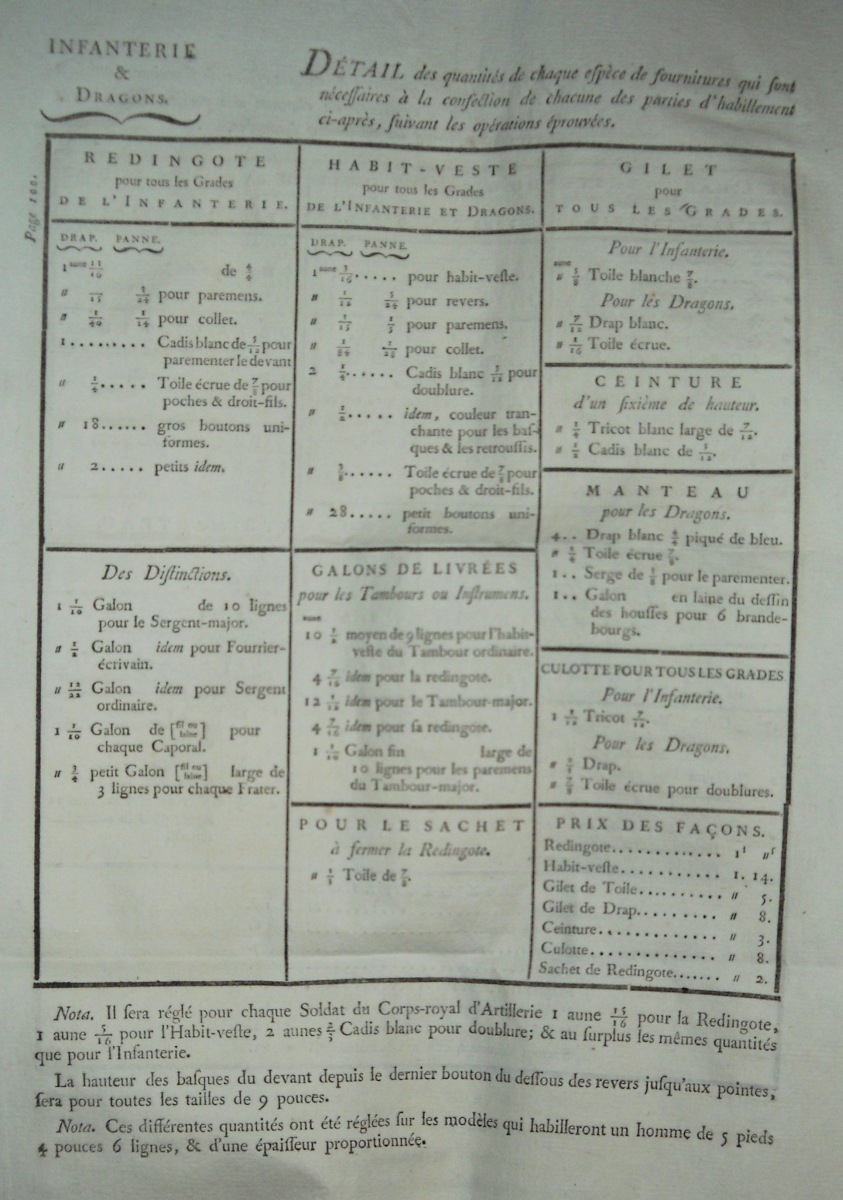 INFANTERIE
&
DRAGONS.
DÉTAIL des quantités de chaque eſpèce de fournitures qui ſont
néceſſaires à la confection de chacune des parties d'habillement
ci-après, ſuivant les opérations éprouvées.
Page 100.
REDINGOTE
pour tous les Grades
DE L'INFANTERIE.
DRAP. PANNE.
1 aune 11/16 de 4/4
" pour paremens.
" 1/40 1/24 pour collet.
1......... Cadis blanc de 5/12 pour
parementer le devant
" 1/4..... Toile écrue de 7/8 pour
poches & droit-fils.
" 18...... gros boutons uni-
formes.
" 2..... petits idem.
Des Diſtinctions.
1 1/10 Galon de 10 lignes
pour le Sergent-major.
" 1/2 Galon idem pour Fourrier-
écrivain.
" 12/22 Galon idem pour Sergent
ordinaire.
1 1/10 Galon de [fil ou laine] pour
chaque Caporal.
" 3/4 petit Galon [fil ou laine] large de
3 lignes pour chaque Frater.
HABIT-VESTE
pour tous les Grades
DE L'INFANTERIE ET DRAGONS.
DRAP. PANNE.
1 aune 3/16..... pour habit-veſte.
" 1/12 5/24 pour revers.
" 1/15 pour paremens.
" pour collet.
2 1/4...... Cadis blanc 5/12 pour
doublure.
" 1/2..... idem, couleur tran-
chante pour les baſ-
ques & les retrouſſis.
" 3/8...... Toile écrue de 7/8 pour
poches & droit-fils.
" 28..... petit boutons uni-
formes.
GALONS DE LIVRÉES
pour les Tambours ou Inſtrumens.
aune
10 1/2 moyen de 9 lignes pour l'habit-
veſte du Tambour ordinaire.
4 7/16 idem pour la redingote.
12 idem pour le Tambour-major.
4 7/16 idem pour ſa redingote.
1 1/10 Galon fin large de
10 lignes pour les paremens
du Tambour-major.
POUR LE SACHET
à fermer la Redingote.
" Toile de 7/8.
GILET
pour
TOUS LES GRADES.
Pour l'Infanterie.
aune
" 5/8 Toile blanche 7/8.
Pour les Dragons.
" 7/12 Drap blanc.
" Toile écrue.
CEINTURE
d'un ſixième de hauteur.
" 1/4 Tricot blanc large de 7/12.
" 1/2 Cadis blanc de 5/12.
MANTEAU
pour les Dragons.
4.. Drap blanc 4/4 piqué de bleu.
" 1/4 Toile écrue 7/8.
1.. Serge de pour le parementer.
1.. Galon en laine du deſſin
des houſſes pour 6 brande-
bourgs.
CULOTTE POUR TOUS LES GRADES
Pour l'Infanterie.
1 1/12 Tricot 7/12.
Pour les Dragons.
" Drap.
" 7/8 Toile écrue pour doublures.
PRIX DES FAÇONS.
Redingote............ 1ˡ "ſ
Habit-veſte........... 1. 14.
Gilet de Toile......... " 5.
Gilet de Drap......... " 8.
Ceinture............. " 3.
Culotte.............. " 8.
Sachet de Redingote....... " 2.
Nota. Il ſera réglé pour chaque Soldat du Corps-royal d'Artillerie 1 aune 15/16 pour la Redingote,
1 aune 5/16 pour l'Habit-veſte, 2 aunes 2/3 Cadis blanc pour doublure; & au ſurplus les mêmes quantités
que pour l'Infanterie.
La hauteur des baſques du devant depuis le dernier bouton du deſſous des revers juſqu'aux pointes,
ſera pour toutes les tailles de 9 pouces.
Nota. Ces différentes quantités ont été réglées ſur les modèles qui habilleront un homme de 5 pieds
4 pouces 6 lignes, & d'une épaiſſeur proportionnée.